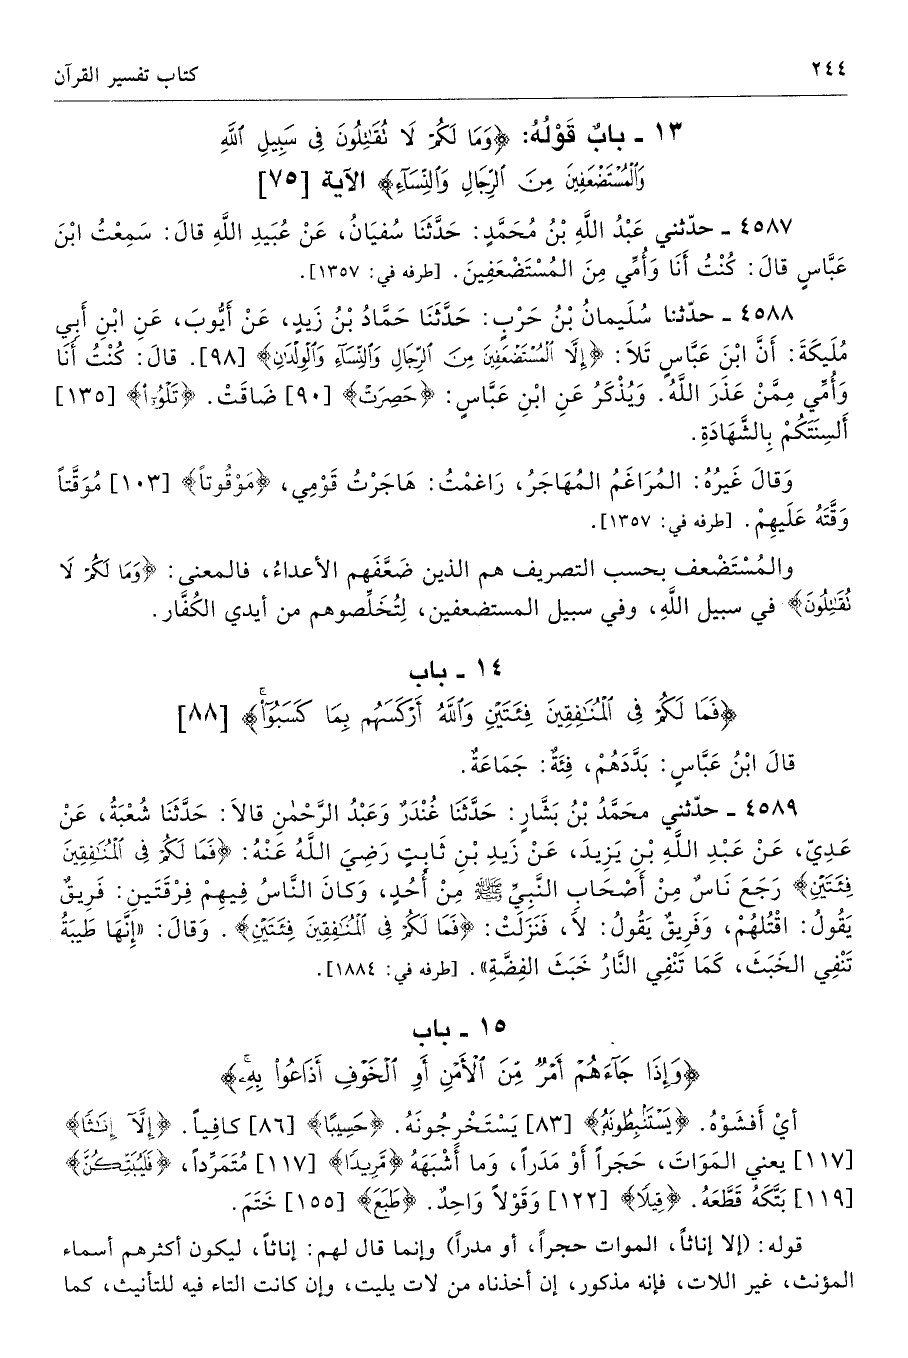 ٢٤٤
كتاب تفسير القرآن
١٣ ـ بابٌ قَوْلُهُ: ﴿وَمَا لَكُمْ لَا نُقَٰتِلُونَ فِى سَبِيلِ ٱللَّهِ
وَٱلْمُسْتَضْعَفِينَ مِنَ ٱلرِّجَالِ وَٱلنِّسَآءِ﴾ الآية [٧٥]
٤٥٨٧ ـ حدّثني عَبْدُ اللَّهِ بْنُ مُحَمَّدٍ: حَدَّثَنَا سُفيَانُ، عَنْ عُبَيدِ اللَّهِ قالَ: سَمِعْتُ ابْنَ
عَبَّاسٍ قالَ: كُنْتُ أَنَا وَأُمِّي مِنَ المُسْتَضْعَفِينَ. [طرفه في: ١٣٥٧].
٤٥٨٨ ـ حدّثنا سُلَيمانُ بْنُ حَرْبٍ: حَدَّثَنَا حَمَّادُ بْنُ زَيدٍ، عَنْ أَيُّوبَ، عَنِ ابْنِ أَبي
مُلَيكَةَ: أَنَّ ابْنَ عَبَّاسٍ تَلاَ: ﴿إِلَّا ٱلْمُسْتَضْعَفِينَ مِنَ ٱلرِّجَالِ وَٱلنِّسَآءِ وَٱلْوِلْدَٰنِ﴾ [٩٨]. قالَ: كُنْتُ أَنَا
وَأُمِّي مِمَّنْ عَذَرَ اللَّهُ. وَيُذْكَرُ عَنِ ابْنِ عَبَّاسٍ: ﴿حَصِرَتْ﴾ [٩٠] ضَاقَتْ. ﴿تَلْوُۥٓا۟﴾ [١٣٥]
أَلسِنَتَكُمْ بِالشَّهَادَةِ.
وَقالَ غَيرُهُ: المُرَاغَمُ المُهَاجَرُ، رَاغمْتُ: هَاجَرْتُ قَوْمِي، ﴿مَوْقُوتاً﴾ [١٠٣] مُوَقَّتاً
وَقَّتَهُ عَلَيهِمْ. [طرفه في: ١٣٥٧].
والمُسْتَضْعف بحسب التصريف هم الذين ضَعَّفَهم الأعداءُ، فالمعنى: ﴿وَمَا لَكُمْ لَا
نُقَٰتِلُونَ﴾ في سبيل اللَّهِ، وفي سبيل المستضعفين، لِتُخَلِّصوهم من أيدي الكُفَّار.
١٤ ـ باب
﴿فَمَا لَكُمْ فِى ٱلْمُنَٰفِقِينَ فِئَتَيْنِ وَٱللَّهُ أَرْكَسَهُم بِمَا كَسَبُوٓا۟ۚ﴾ [٨٨]
قالَ ابْنُ عَبَّاسٍ: بَدَّدَهُمْ، فِئَةٌ: جَمَاعَةٌ.
٤٥٨٩ ـ حدّثني محَمَّدُ بْنُ بَشَّارٍ: حَدَّثَنَا غُنْدَرٌ وَعَبْدُ الرَّحْمٰنِ قالاَ: حَدَّثَنَا شُعْبَةُ، عَنْ
عَدِيّ، عَنْ عَبْدِ اللَّهِ بْنِ يَزِيدَ، عَنْ زَيدِ بْنِ ثَابِتٍ رَضِيَ اللَّهُ عَنْهُ: ﴿فَمَا لَكُمْ فِى ٱلْمُنَٰفِقِينَ
فِئَتَيْنِ﴾ رَجَعَ نَاسٌ مِنْ أَصْحَابِ النَّبِيِّ ﷺ مِنْ أُحُدٍ، وَكانَ النَّاسُ فِيهِمْ فِرْقَتَينِ: فَرِيقٌ
يَقُولُ: اقْتُلهُمْ، وَفَرِيقٌ يَقُولُ: لاَ، فَنَزَلَتْ: ﴿فَمَا لَكُمْ فِى ٱلْمُنَٰفِقِينَ فِئَتَيْنِ﴾. وَقالَ: «إِنَّهَا طَيبَةُ
تَنْفِي الخَبَثَ، كَمَا تَنْفِي النَّارُ خَبَثَ الفِضَّةِ». [طرفه في: ١٨٨٤].
١٥ ـ باب
﴿وَإِذَا جَآءَهُمْ أَمْرٌ مِّنَ ٱلْأَمْنِ أَوِ ٱلْخَوْفِ أَذَاعُوا۟ بِهِۦۚ﴾
أَيْ أَفشَوْهُ. ﴿يَسْتَنۢبِطُونَهُۥ﴾ [٨٣] يَسْتَخْرِجُونَهُ. ﴿حَسِيبًا﴾ [٨٦] كافِياً. ﴿إِلَّآ إِنَٰثًا﴾
[١١٧] يعني المَوَاتَ، حَجَراً أَوْ مَدَراً، وَما أَشْبَهَهُ ﴿مَّرِيدًا﴾ [١١٧] مُتَمَرِّداً، ﴿فَلَيُبَتِّكُنَّ﴾
[١١٩] بَتَّكَهُ قَطَّعَهُ. ﴿قِيلًا﴾ [١٢٢] وَقَوْلاً وَاحِدٌ. ﴿طَبَعَ﴾ [١٥٥] خَتَمَ.
قوله: (إلا إناثاً، الموات حجراً، أو مدراً) وإنما قال لهم: إناثاً، ليكون أكثرهم أسماء
المؤنث، غير اللات، فإنه مذكور، إن أخذناه من لات يليت، وإن كانت التاء فيه للتأنيث، كما